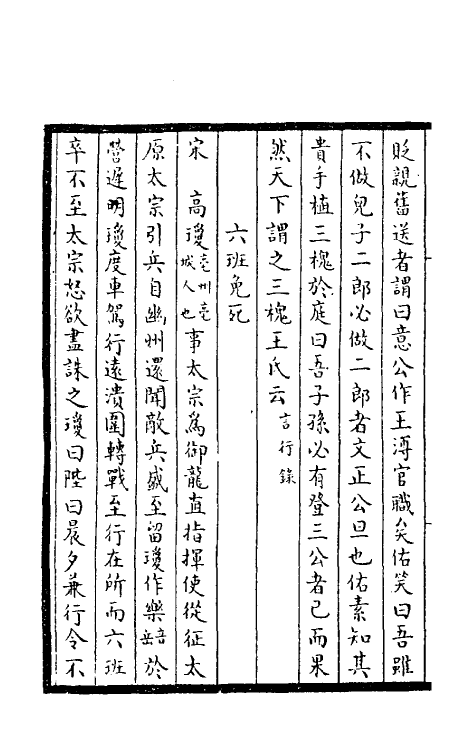 貶親舊送者謂曰意公作王溥官職矣佑笑曰吾雖
不做兒子二郎必做二郎者文正公旦也佑素知其
貴手植三槐於庭曰吾子孫必有登三公者已而果
然天下謂之三槐王氏云言行錄
六班免死
宋　高瓊亳州亳城人也事太宗爲御龍直指揮使從征太
原太宗引兵自幽州還聞敵兵盛至留瓊作樂於
營遲明瓊度車駕行遠潰圍轉戰至行在所而六班
卒不至太宗怒欲盡誅之瓊曰陛曰晨夕兼行令不